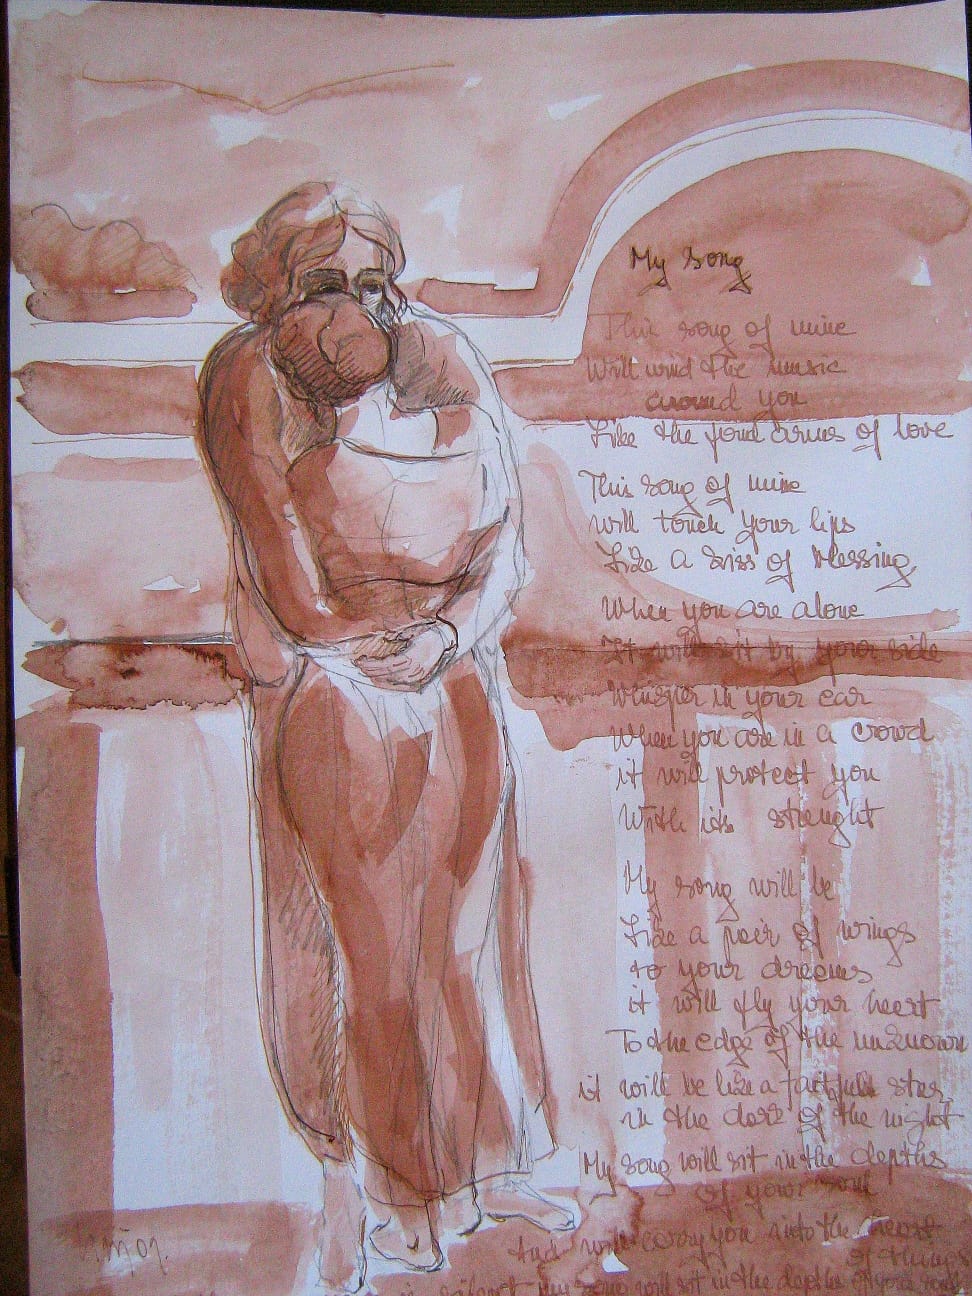 My song
This song of mine
Will wind the music
around you
Like the fond arms of love
This song of mine
will touch your lips
Like a kiss of blessing,
When you are alone
It will sit by your side
Whisper in your ear
When you are in a crowd
it will protect you
With its strenght
My song will be
Like a pair of wings
to your dreams
it will fly your heart
To the edge of the unknown
it will be like a faithfull star,
in the dark of the night
My song will sit in the depths
of your soul
And will carry you into the heart
of things
my song will sit in the depths of your soul